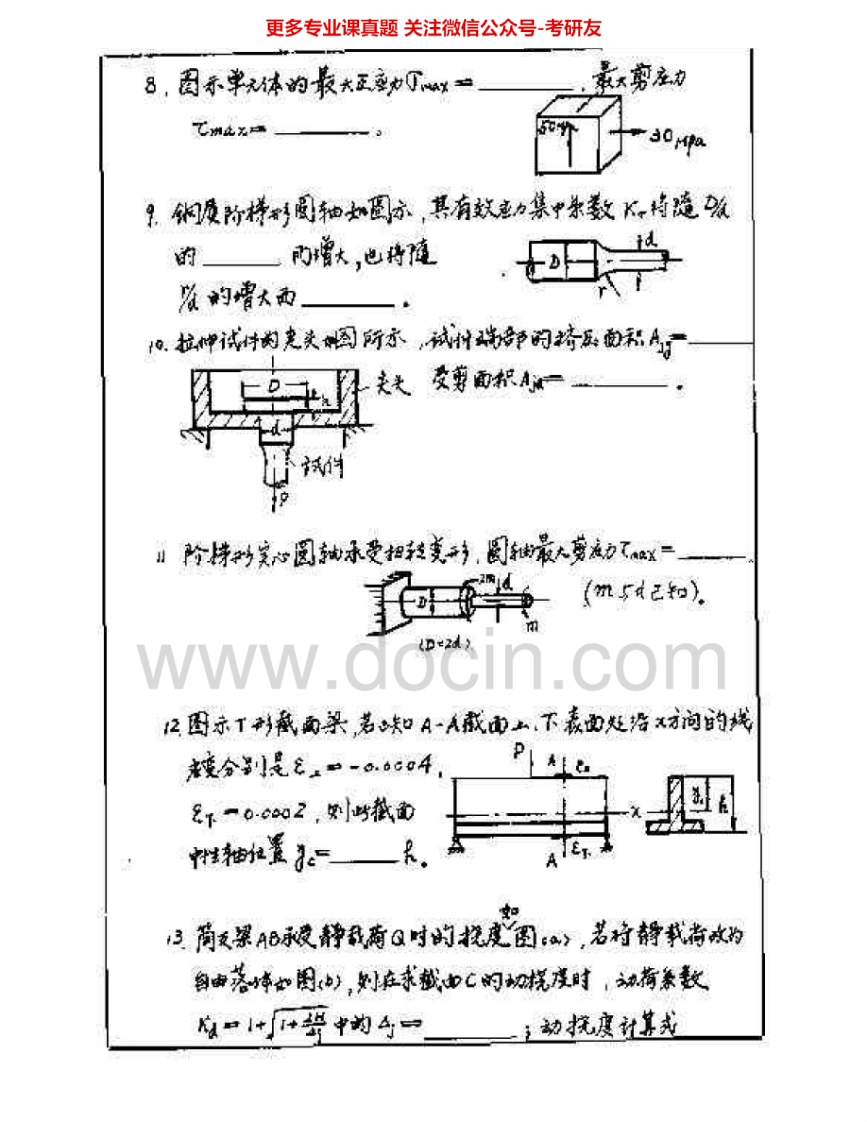 更多专业课真题 关注微信公众号-考研友
8. 图示单元体的最大正应力σmax = ______, 最大剪应力
τmax = ______。
30 MPa
9. 钢质阶梯形圆轴如图示, 其有效应力集中系数 Kσ 将随 D/d
的 ______ 而增大, 也将随
r/d 的增大而 ______.
D
d
r
10. 拉伸试件的夹头如图所示, 试件端部的挤压面积 Ajy = ______
受剪面积 Ajq = ______.
D
h
夹头
d
试件
P
11 阶梯形实心圆轴承受扭转变形, 圆轴最大剪应力τmax = ______.
(m与d已知)。
D
2m
d
m
(D=2d)
www.docin.com
12 图示T形截面梁, 若已知 A-A截面上、下表面处沿x方向的线
应变分别是 ε上 = -0.0004,
ε下 = 0.0002, 则此截面
中性轴位置 yc = ______ h。
P
A
ε上
x
yc
h
A
ε下
13. 简支梁AB承受静载荷Q时的挠度如图(a), 若将静载荷改为
自由落体如图(b), 则在求截面C的动挠度时, 动荷系数
Kd = 1+√1+2H/Δj 中的 Δj = ______; 动挠度计算式